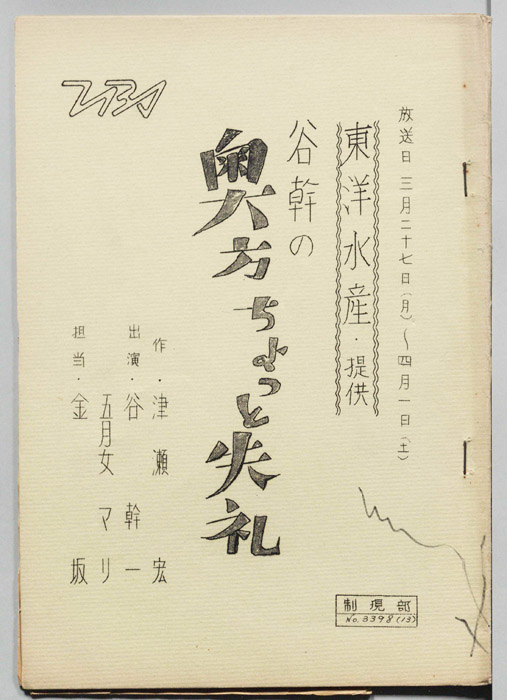 放送日 三月二十七日(月)〜四月一日(土)
東洋水産・提供
谷幹の
奥方ちょっと失礼
作・津瀬 宏
出演・谷 幹一
五月女 マリ
担当・金 坂
制現部
No.3398(13)